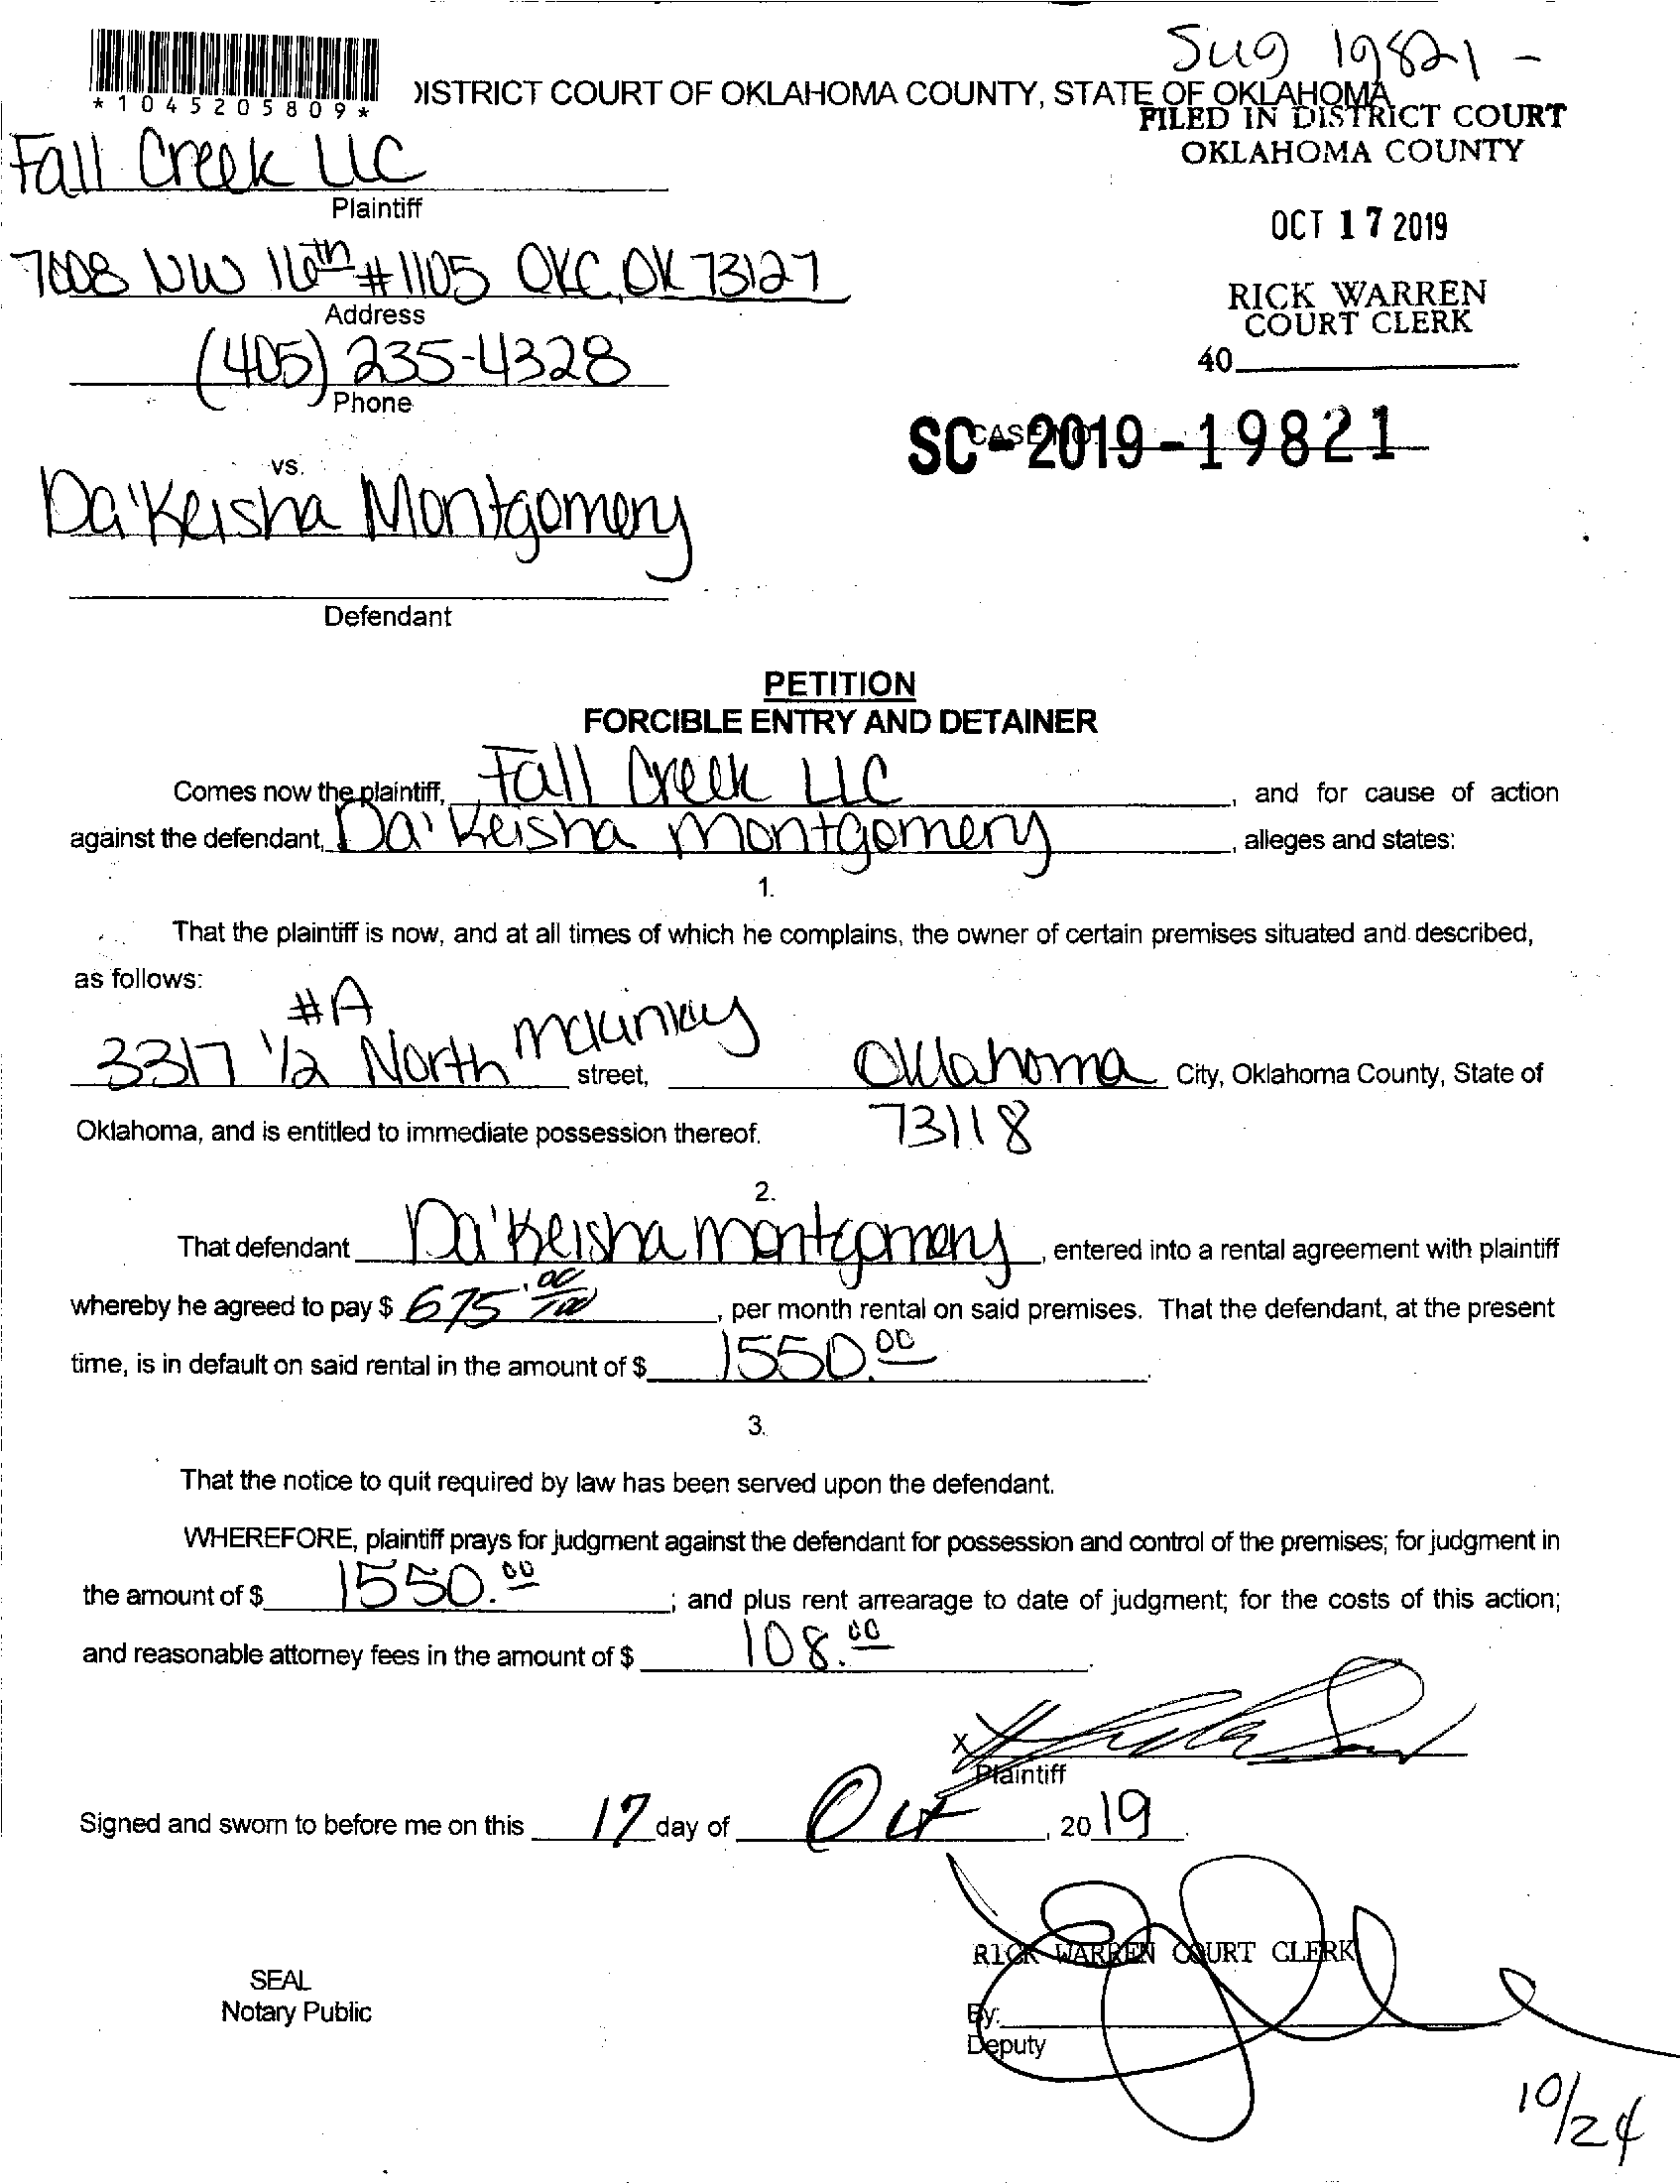 Sug 19821 -
*1045205809*
DISTRICT COURT OF OKLAHOMA COUNTY, STATE OF OKLAHOMA
FILED IN DISTRICT COURT
OKLAHOMA COUNTY
Fall Creek LLC
Plaintiff
OCT 17 2019
7608 NW 16th #1105 OKC, OK 73127
Address
RICK WARREN
COURT CLERK
(405) 235-4328
Phone
40
CASE NO.
SC-2019-19821
vs.
Da'Keisha Montgomery
Defendant
PETITION
FORCIBLE ENTRY AND DETAINER
Comes now the plaintiff, Fall Creek LLC, and for cause of action
against the defendant, Da'Keisha Montgomery, alleges and states:
1.
That the plaintiff is now, and at all times of which he complains, the owner of certain premises situated and described,
as follows:
#A
3317 1/2 North Mckinley street, Oklahoma City, Oklahoma County, State of
Oklahoma, and is entitled to immediate possession thereof. 73118
2.
That defendant Da'Keisha Montgomery, entered into a rental agreement with plaintiff
whereby he agreed to pay $ 675.00/100, per month rental on said premises. That the defendant, at the present
time, is in default on said rental in the amount of $ 1550.00.
3.
That the notice to quit required by law has been served upon the defendant.
WHEREFORE, plaintiff prays for judgment against the defendant for possession and control of the premises; for judgment in
the amount of $ 1550.00; and plus rent arrearage to date of judgment; for the costs of this action;
and reasonable attorney fees in the amount of $ 108.00.
X
Plaintiff
Signed and sworn to before me on this 17 day of Oct, 2019.
RICK WARREN COURT CLERK
SEAL
Notary Public
By:
Deputy
10/24